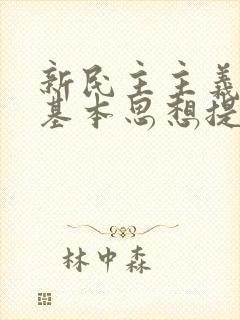 新民主主義
基本思想提
林中森